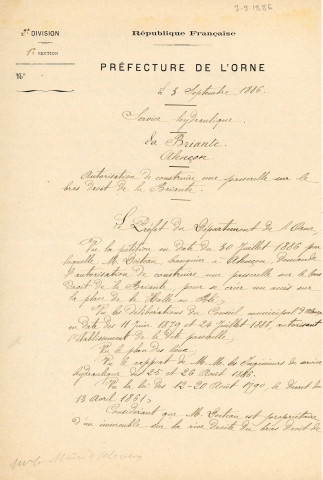 3-9-1886
2e DIVISION
1e SECTION
No
République Française
PRÉFECTURE DE L'ORNE
Le 3 Septembre 1886.
Service hydraulique.
La Briante.
Alençon
Autorisation de construire une passerelle sur le
bras droit de la Briante.
Le Préfet du Département de l'Orne,
Vu la pétition en date du 30 Juillet 1886 par
laquelle M. banquier à Alençon, demande
l'autorisation de construire une passerelle sur le bras
Droit de la Briante, pour se créer un accès sur
la place de la Halle au Blé;
Vu les délibérations du Conseil municipal d'Alençon
en date des 11 Juin 1879 et 24 Juillet 1886, autorisant
l'établissement de la dite passerelle;
Vu le plan des lieux
Vu le rapport de M. M. les Ingénieurs du service
hydraulique des 25 et 26 Août 1886.
Vu la loi des 12-20 Août 1790, le Décret du
13 Avril 1861;
Considérant que M. est propriétaire
d'un immeuble sur la rive droite du bras droit de